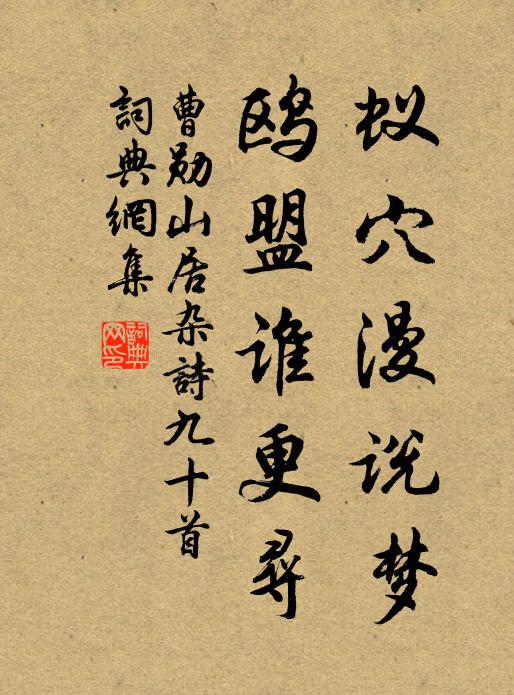 蚁穴漫说梦
鸥盟谁更寻
曹勋山居杂詩九十首
詞典網集
詞典網印